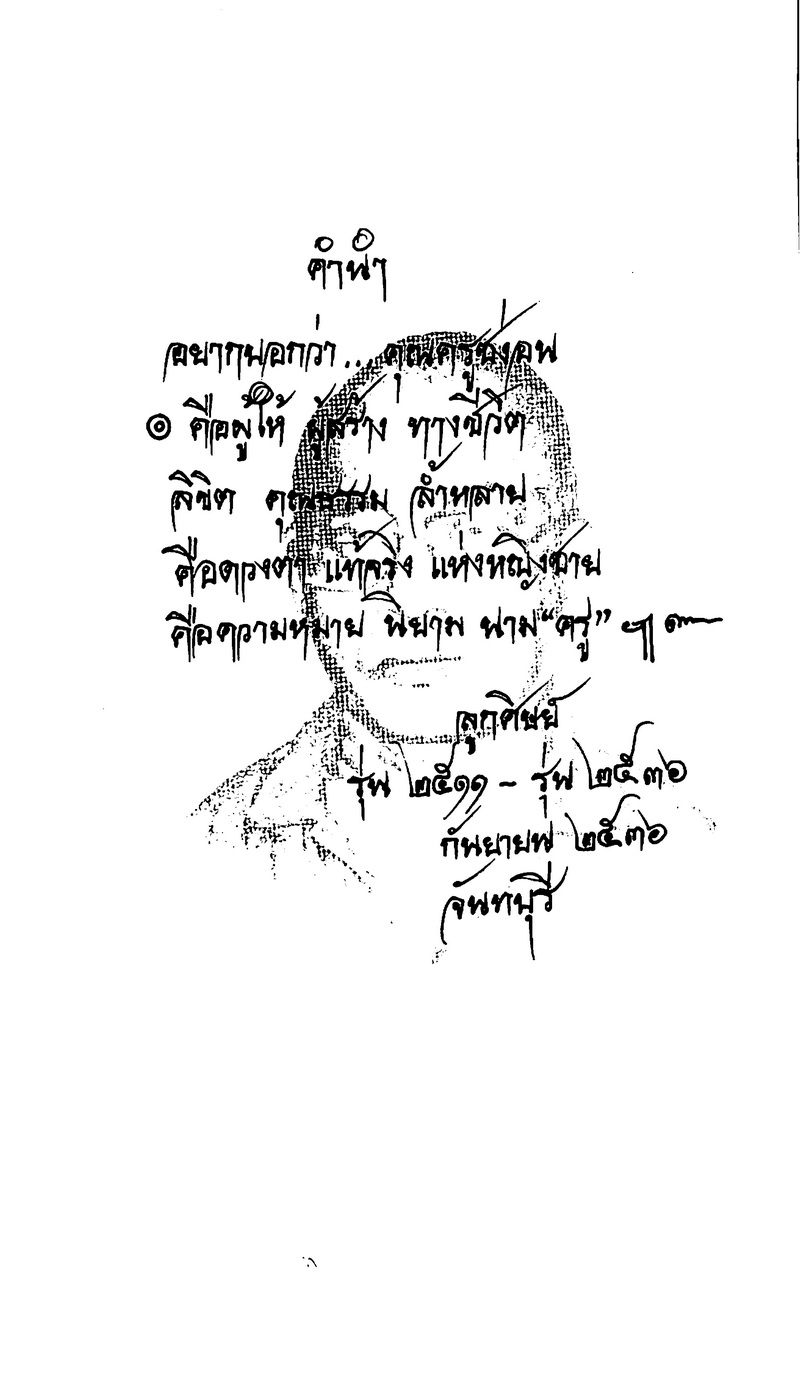 คำนำ
อยากบอกว่า...คุณครูชะอ้อน
๏ คือผู้ให้ ผู้สร้าง ทางชีวิต
ลิขิต คุณธรรม ล้ำหลาย
คือดวงตา แท้จริง แห่งหญิงชาย
คือความหมาย นิยาม นาม “ครู” ฯ๛
ลูกศิษย์
รุ่น ๒๕๑๑ - รุ่น ๒๕๓๖
กันยายน ๒๕๓๖
จันทบุรี